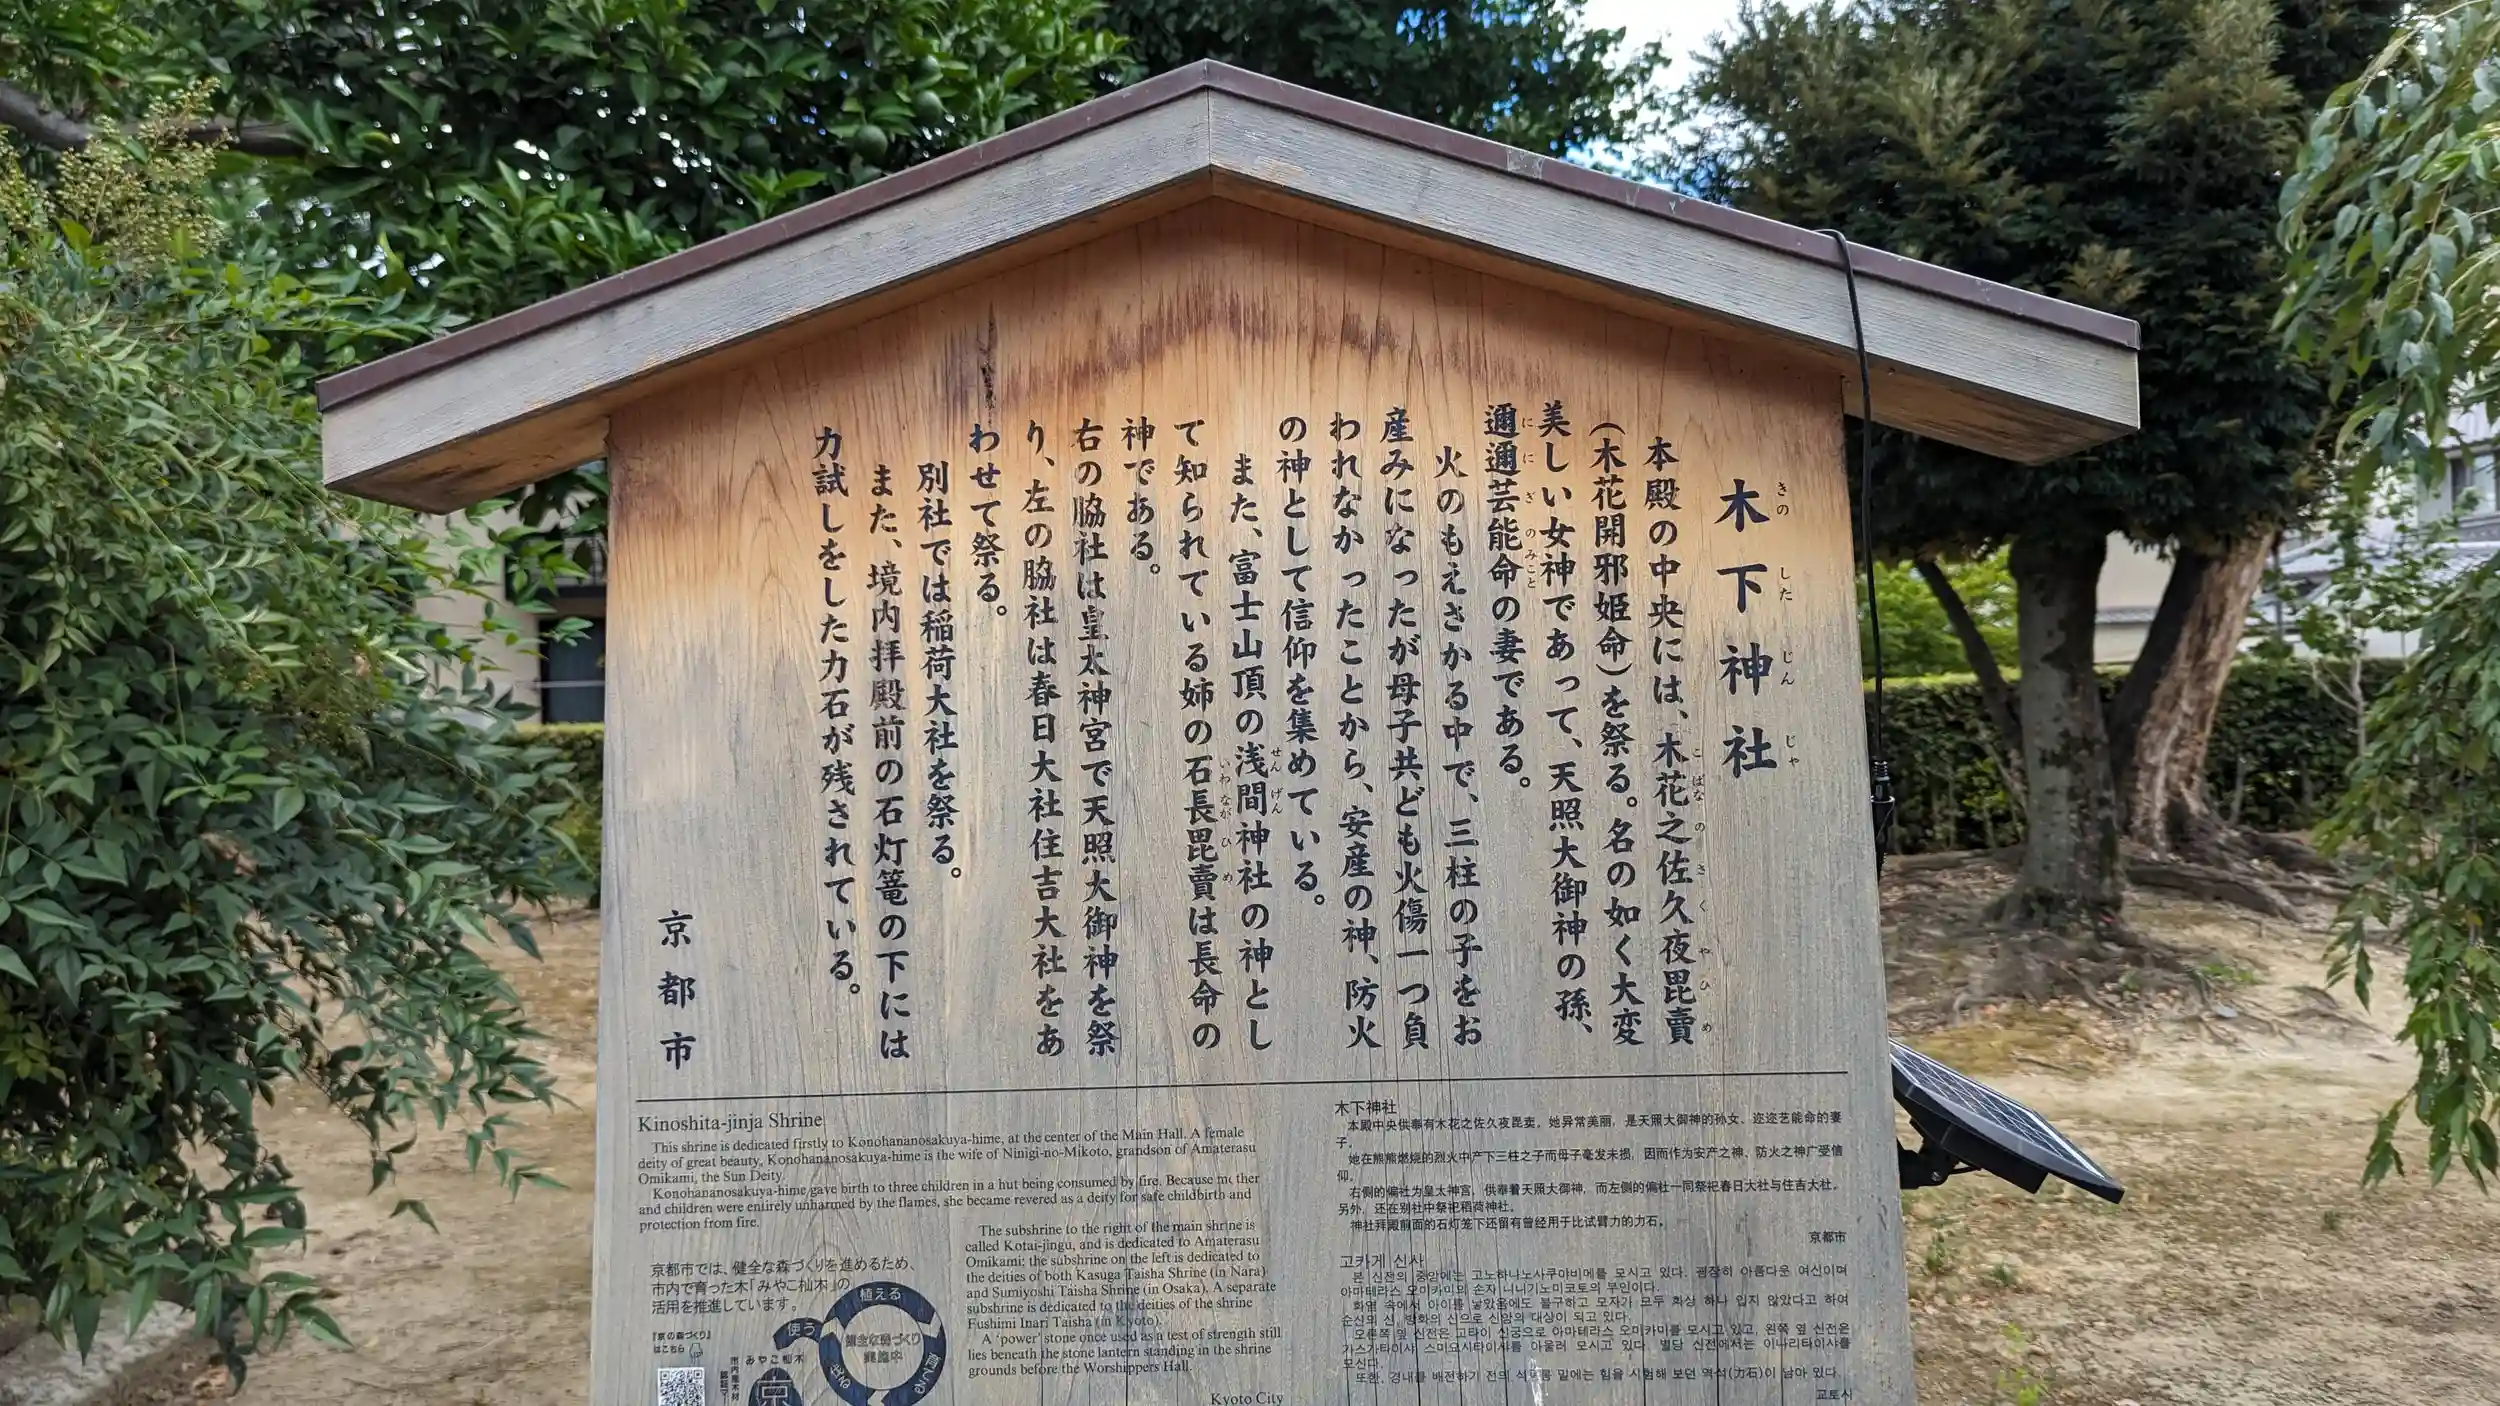 木下神社
きのしたじんじゃ
本殿の中央には、木花之佐久夜毘賣
こばなのさくやひめ
(木花開邪姫命)を祭る。名の如く大変
美しい女神であって、天照大御神の孫、
邇邇芸能命の妻である。
ににぎのみこと
火のもえさかる中で、三柱の子をお
産みになったが母子共ども火傷一つ負
われなかったことから、安産の神、防火
の神として信仰を集めている。
また、富士山頂の浅間神社の神とし
せんげん
て知られている姉の石長毘賣は長命の
いわながひめ
神である。
右の脇社は皇太神宮で天照大御神を祭
り、左の脇社は春日大社住吉大社をあ
わせて祭る。
別社では稲荷大社を祭る。
また、境内拝殿前の石灯篭の下には
力試しをした力石が残されている。
京都市
Kinoshita-jinja Shrine
This shrine is dedicated firstly to Konohananosakuya-hime, at the center of the Main Hall. A female
deity of great beauty, Konohananosakuya-hime is the wife of Ninigi-no-Mikoto, grandson of Amaterasu
Omikami, the Sun Deity.
Konohananosakuya-hime gave birth to three children in a hut being consumed by fire. Because mother
and children were entirely unharmed by the flames, she became revered as a deity for safe childbirth and
protection from fire.
The subshrine to the right of the main shrine is
called Kotai-jingu, and is dedicated to Amaterasu
Omikami; the subshrine on the left is dedicated to
the deities of both Kasuga Taisha Shrine (in Nara)
and Sumiyoshi Taisha Shrine (in Osaka). A separate
subshrine is dedicated to the deities of the shrine
Fushimi Inari Taisha (in Kyoto).
A 'power' stone once used as a test of strength still
lies beneath the stone lantern standing in the shrine
grounds before the Worshippers Hall.
Kyoto City
京都市では、健全な森づくりを進めるため、
市内で育った木「みやこ杣木」の
活用を推進しています。
『京の森づくり』
はこちら
みやこ杣木
植える
使う
育てる
健全な森づくり
実施中
京
木下神社
本殿中央供奉有木花之佐久夜毘卖，她异常美丽，是天照大御神的孙女、迩迩艺能命的妻
子。
她在熊熊燃烧的烈火中产下三柱之子而母子毫发未损，因而作为安产之神、防火之神广受信
仰。
右侧的偏社为皇太神宫，供奉着天照大御神，而左侧的偏社一同祭祀春日大社与住吉大社。
另外，还在别社中祭祀稻荷神社。
神社拜殿前面的石灯笼下还留有曾经用于比试臂力的力石。
京都市
고카게 신사
본 신전의 중앙에는 고노하나노사쿠야비메를 모시고 있다. 굉장히 아름다운 여신이며
아마테라스 오미카미의 손자 니니기노미코토의 부인이다.
화염 속에서 아이를 낳았음에도 불구하고 모자가 모두 화상 하나 입지 않았다고 하여
순산의 신, 방화의 신으로 신앙의 대상이 되고 있다.
오른쪽 옆 신전은 고타이 신궁으로 아마테라스 오미카미를 모시고 있고, 왼쪽 옆 신전은
가스가타이샤 스미요시타이샤를 아울러 모시고 있다. 별당 신전에서는 이나리타이샤를
모신다.
또한, 경내를 배전하기 전의 석등롱 밑에는 힘을 시험해 보던 역석(力石)이 남아 있다.
교토시